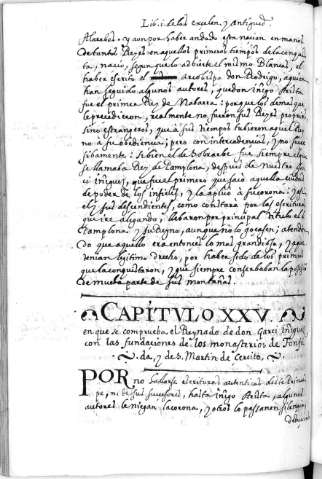 Lib. i. de las excelen. y Antigued.
Alarabes: y aun por haber andado esta nacion en manos
de tantos Reyes en aquellos primeros tiempos de la conquis
ta, nacio, segun que lo advierte el mismo Blancas, el
haber escrito el Arçobispo don Rodrigo, a quien
han seguido algunos autores, que don Iñigo Arista
fue el primer Rey de Nabarra: porque los demas que
le precedieron, realmente no fueron sus Reyes proprios
sino estrangeros, que a sus tiempos tubieron aquel Rey
no a su obediencia; pero con intercadencias, y no suce
sibamente: Si bien el de Sobrarbe fue siempre el que
se llamaba Rey de Pamplona, despues de nuestro Gar
ci Iñiguez, que fue el primero que sacó aquella ciudad
de poder de los infieles, y la aplicó a su corona: y assi
el y sus descendientes, como constará por las escrituras
que iré alegando, usaron por principal titulo el de
Pamplona y Su Reyno, aunque no lo gocasen; atendien
do que aquello era entonces lo mas grandioso, y a que
tenian legitimo derecho, por haber sido los primeros
que la conquistaron, y que siempre conserbaban la posesion
de mucha parte de sus montañas.
CAPÍTVLO XXV.
en que se comprueba el Reynado de don Garci Iñiguez
con las fundaciones de los monasterios de Fonfri
da, y de S. Martin de Cercito,
POR no hallarse escrituras autenticas deste Princi
pe, ni de sus sucesores, hasta Iñigo Arista, algunos
autores le niegan la corona, y otros lo passan en silencio,